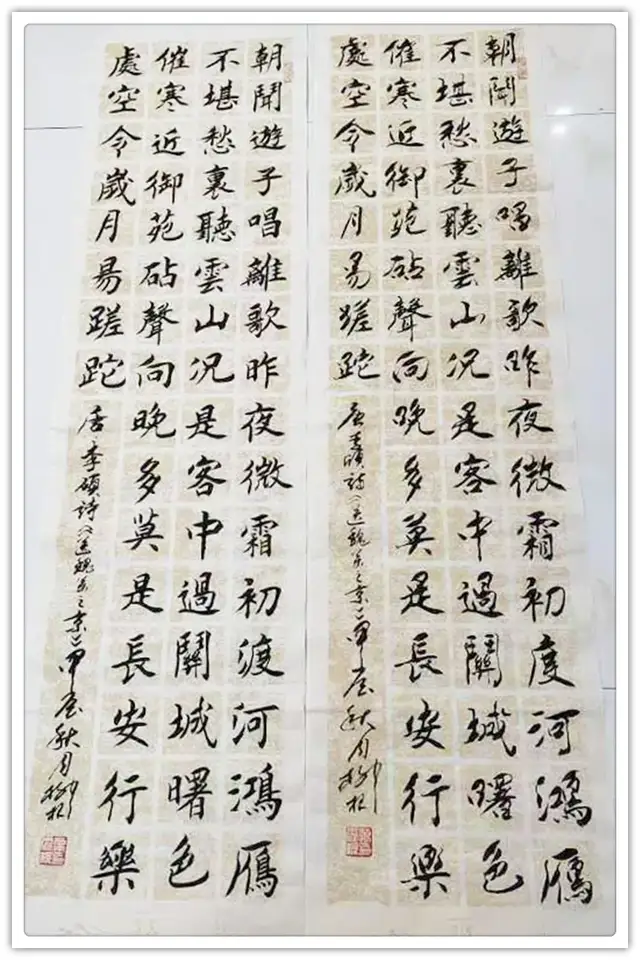 朝聞遊子唱離歌昨夜微霜初度河鴻雁
不堪愁裏聽雲山况是客中過關城曙色
催寒近御苑砧聲向晚多莫是長安行樂
處空令歲月易蹉跎
唐李頎詩《送魏万之京》秋月
朝聞遊子唱離歌昨夜微霜初渡河鴻雁
不堪愁裏聽雲山况是客中過關城曙色
催寒近御苑砧聲向晚多莫是長安行樂
處空令歲月易蹉跎
唐李碩詩《送魏万之京》秋月